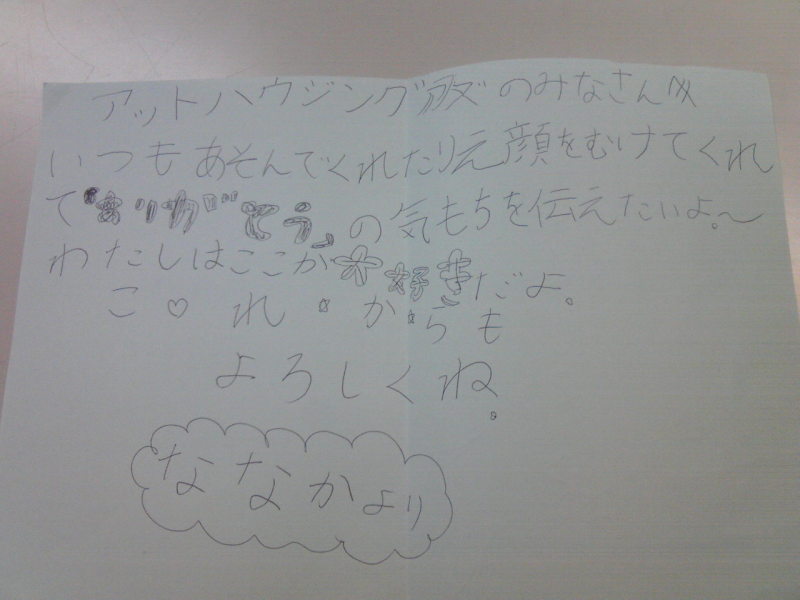 アットハウジングのみなさんへ
いつもあそんでくれたりえ顔をむけてくれ
て「ありがとう」の気もちを伝えたいよ。〜
わたしはここが大好きだよ。
こ♡れ☆か☆らも
よろしくね。
ななかより